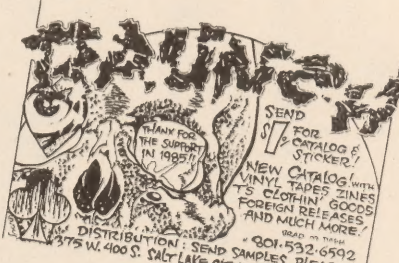 THANK FOR
THE SUPPORT
IN 1985!!
SEND
$1 FOR
CATALOG &
STICKER!
NEW CATALOG! WITH
VINYL TAPES ZINES
T'S CLOTHIN' GOODS
FOREIGN RELEASES
AND MUCH MORE!
BRAD
801·532·6592
DISTRIBUTION: SEND SAMPLES, PLEASE
375 W. 400 S. SALT LAKE